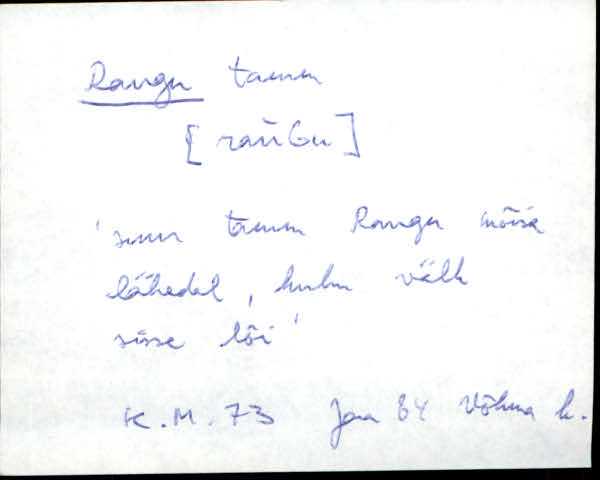 Rangu tamm
[rańGu]
'suur tamm Rangu mõisa
lähedal, kuhu välk
sisse lõi'
K.M. 73 Jaa 84 Võhma k.